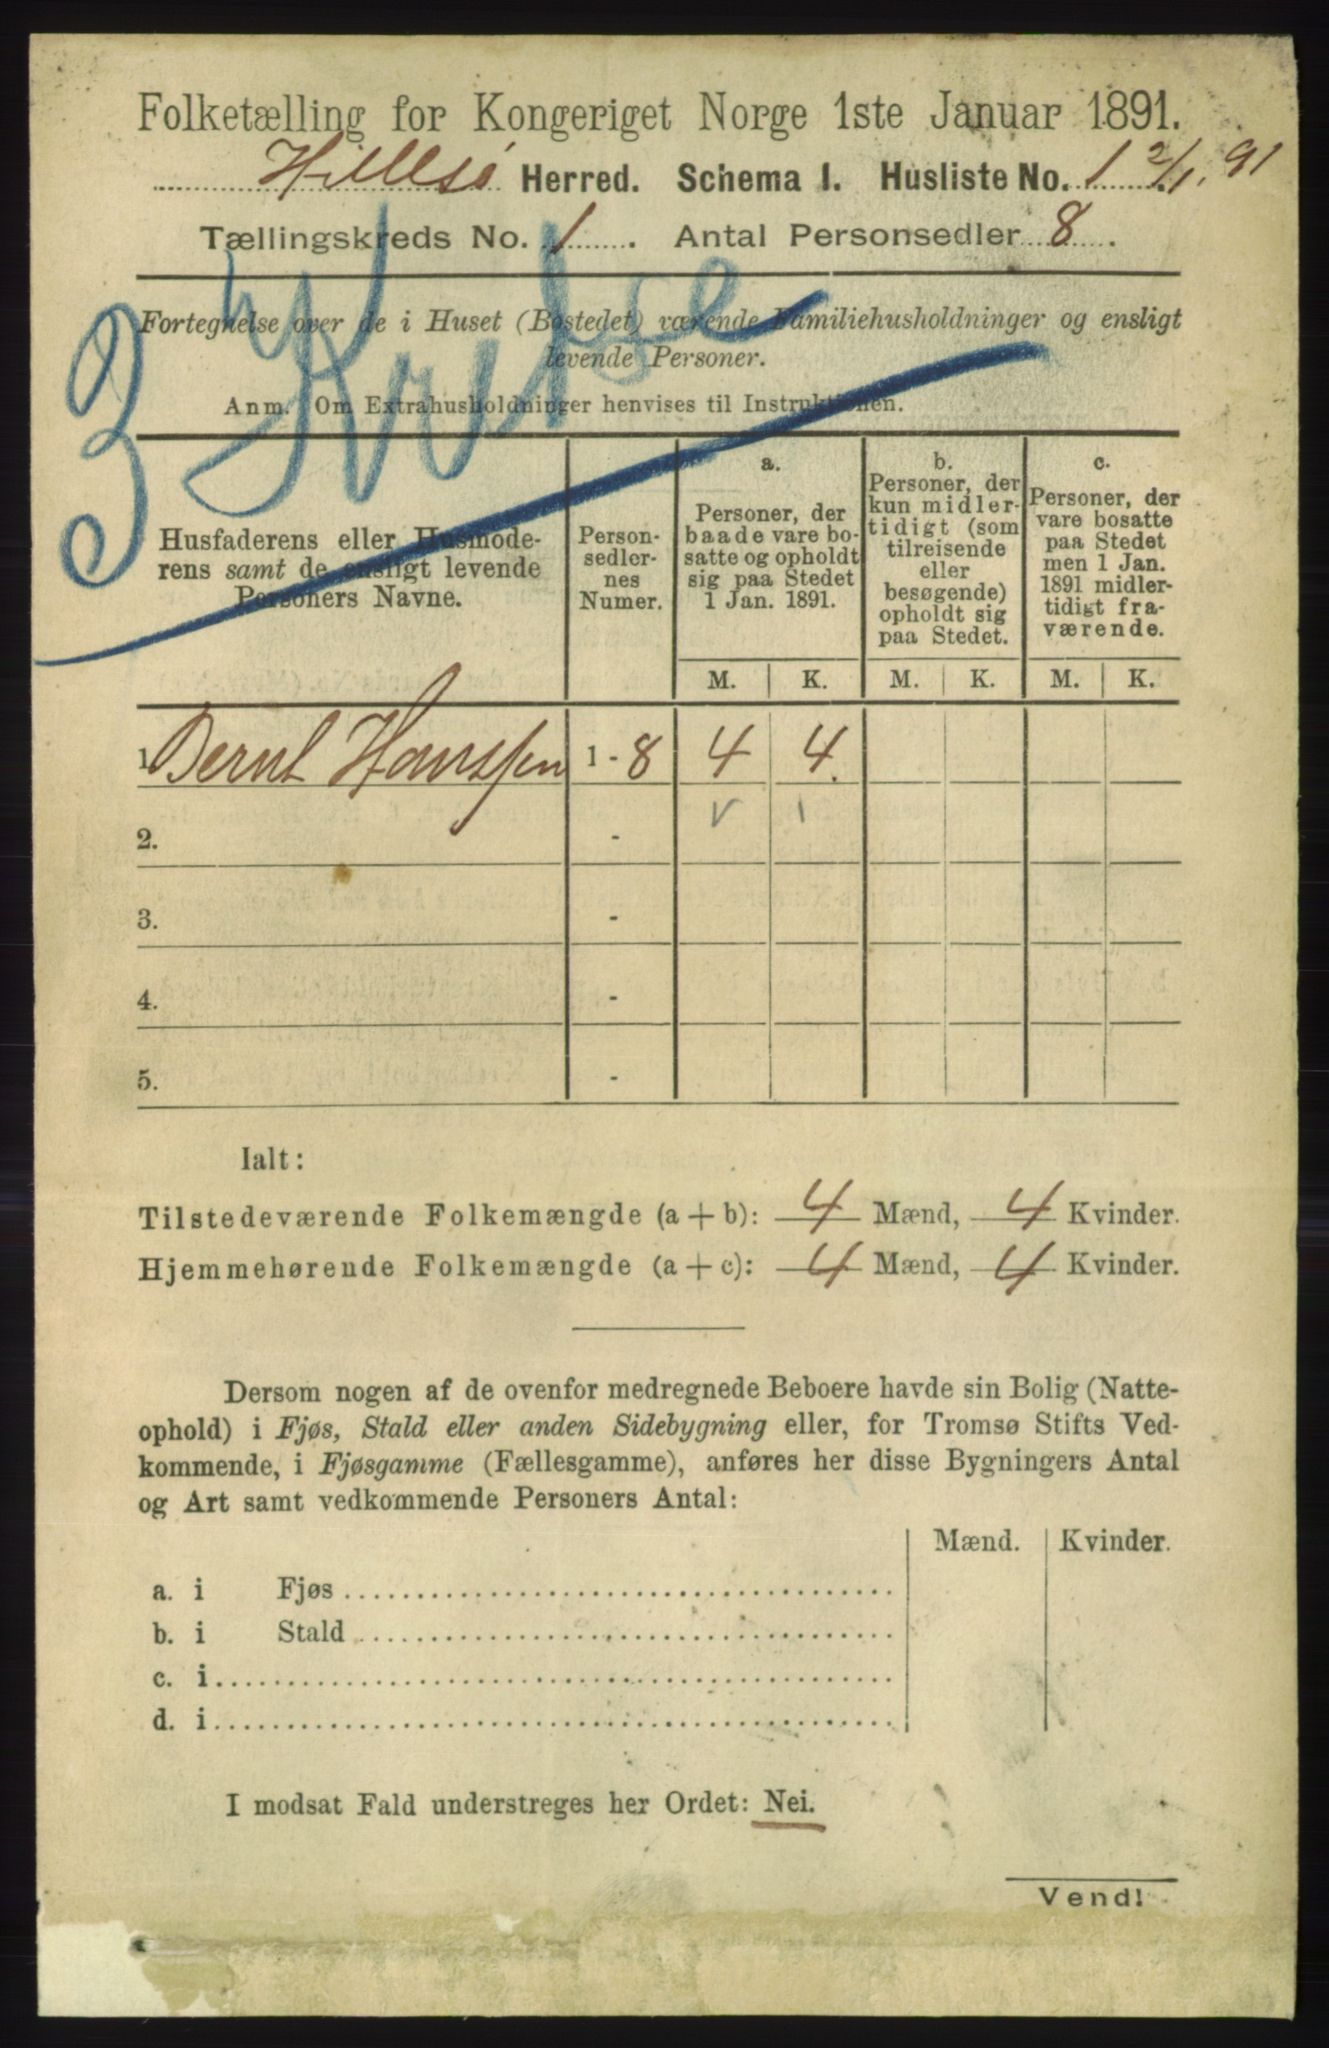 Folketælling for Kongeriget Norge 1ste Januar 1891.
Hillesö Herred. Schema 1. Husliste No. 1 2/1. 91
Tællingskreds No. 1. Antal Personsedler 8.
Fortegnelse over de i Huset (Bostedet) værende Familiehusholdninger og ensligt
levende Personer.
Anm. Om Extrahusholdninger henvises til Instruktionen.
3
Husfaderens eller Husmode-
rens samt de ensligt levende
Personers Navne.
Person-
sedler-
nes
Numer.
a.
Personer, der
baade vare bo-
satte og opholdt
sig paa Stedet
1 Jan. 1891.
b.
Personer, der
kun midler-
tidigt (som
tilreisende
eller
besøgende)
opholdt sig
paa Stedet.
c.
Personer, der
vare bosatte
paa Stedet
men 1 Jan.
1891 midler-
tidigt fra-
værende.
M. K. M. K. M. K.
1. Bernt Hanssen 1 - 8 4 4.
2. -
3. -
4. -
5. -
Ialt:
Tilstedeværende Folkemængde (a + b): 4 Mænd, 4 Kvinder.
Hjemmehørende Folkemængde (a + c): 4 Mænd, 4 Kvinder.
Dersom nogen af de ovenfor medregnede Beboere havde sin Bolig (Natte-
ophold) i Fjøs, Stald eller anden Sidebygning eller, for Tromsø Stifts Ved-
kommende, i Fjøsgamme (Fællesgamme), anføres her disse Bygningers Antal
og Art samt vedkommende Personers Antal:
Mænd. Kvinder.
a. i Fjøs
b. i Stald
c. i
d. i
I modsat Fald understreges her Ordet: Nei.
Vend!